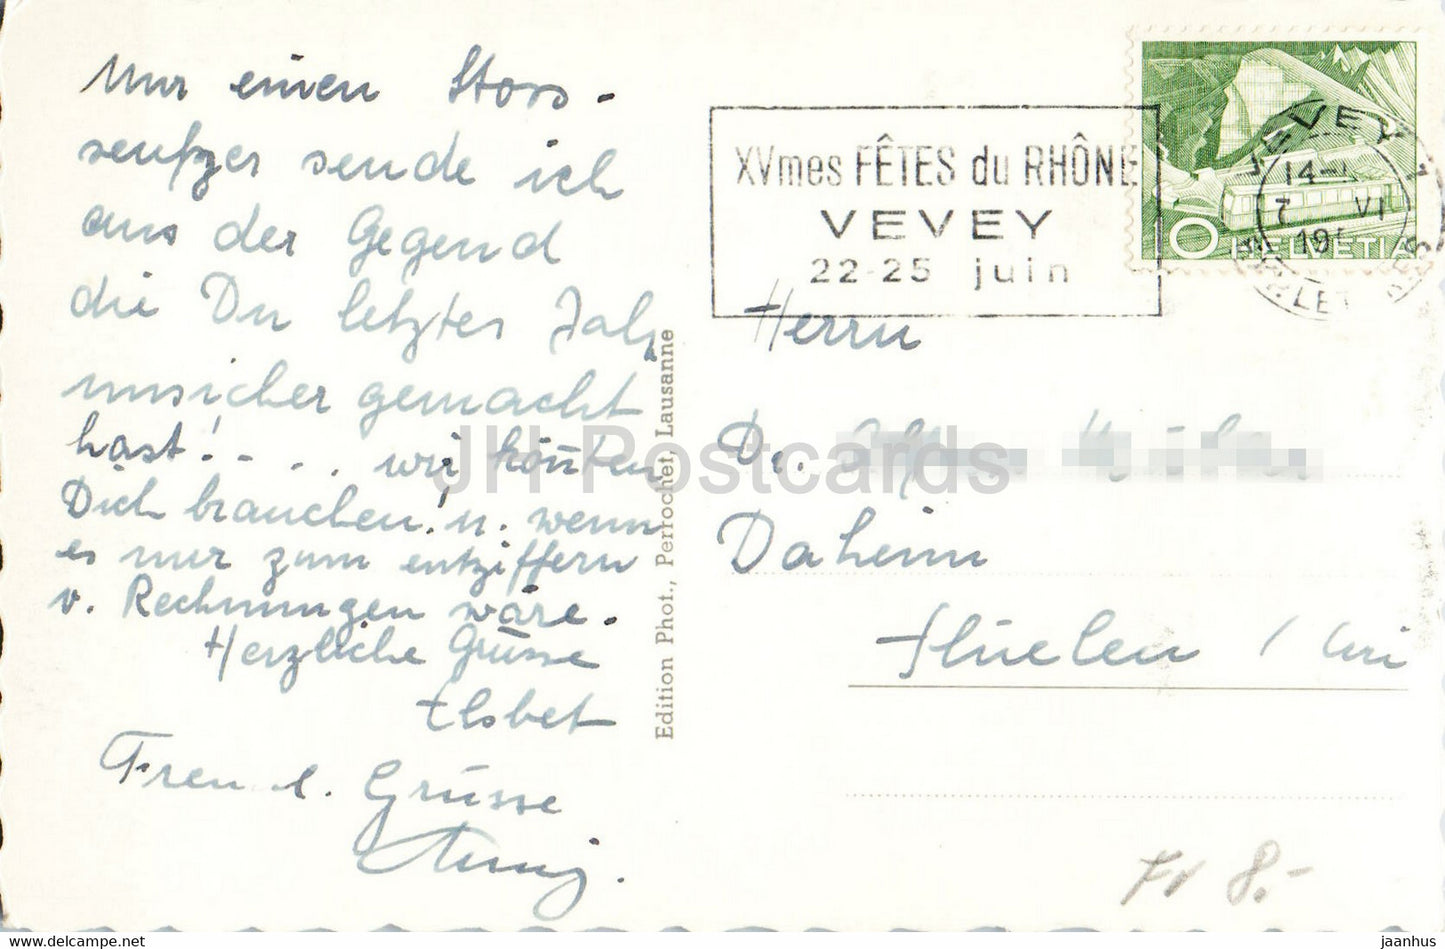 Nur einen Stoss-
seufzer sende ich
aus der Gegend
die Du letztes Jahr
unsicher gemacht
hast! - . . . wir könnten
Dich brauchen! u. wenn
es nur zum entziffern
v. Rechnungen wäre.
Herzliche Grüsse
Elsbet
Freu l. Grüsse
Edition Phot., Perrochet, Lausanne
XVmes FÊTES du RHÔNE
VEVEY
22-25 juin
10 HELVETIA
VEVEY 1
14-
7 VI
195
Herrn
Dr.
Daheim
Flüelen / Uri
Fr 8.-
JH Postcards
www.delcampe.net
jaanhus